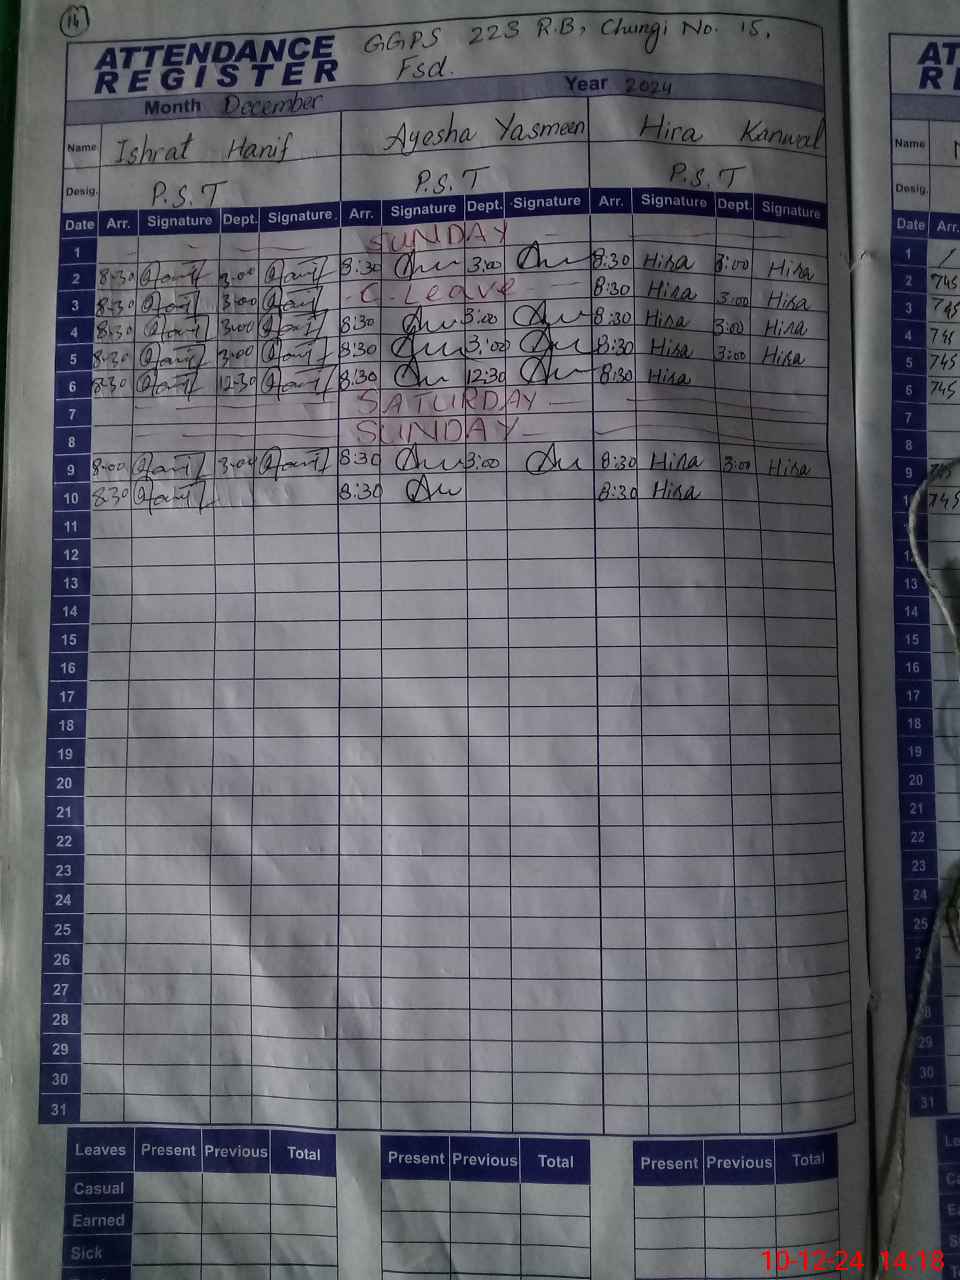 14
ATTENDANCE REGISTER
GGPS 223 R.B, Chungi No. 15,
Fsd.
Month December Year 2024
Name Ishrat Hanif Ayesha Yasmeen Hira Kanwal
Desig. P.S.T P.S.T P.S.T
Date Arr. Signature Dept. Signature Arr. Signature Dept. Signature Arr. Signature Dept. Signature
1 SUNDAY
2 8:30 Hanif 3:00 Hanif 8:30 3:00 8:30 Hira 3:00 Hira
3 8:30 Hanif 3:00 Hanif C. Leave 8:30 Hira 3:00 Hira
4 8:30 Hanif 3:00 Hanif 8:30 3:00 8:30 Hira 3:00 Hira
5 8:30 Hanif 3:00 Hanif 8:30 3:00 8:30 Hira 3:00 Hira
6 8:30 Hanif 12:30 Hanif 8:30 12:30 8:30 Hira
7 SATURDAY
8 SUNDAY
9 8:00 Hanif 3:00 Hanif 8:30 3:00 8:30 Hira 3:00 Hira
10 8:30 Hanif 8:30 8:30 Hira
11
12
13
14
15
16
17
18
19
20
21
22
23
24
25
26
27
28
29
30
31
Leaves Present Previous Total Present Previous Total Present Previous Total
Casual
Earned
Sick
Name
Desig.
Date Arr.
1
2 745
3 745
4 745
5 745
6 745
7
8
9 745
745
13
14
15
16
17
18
19
20
21
22
23
24
25
29
30
31
10-12-24 14:18